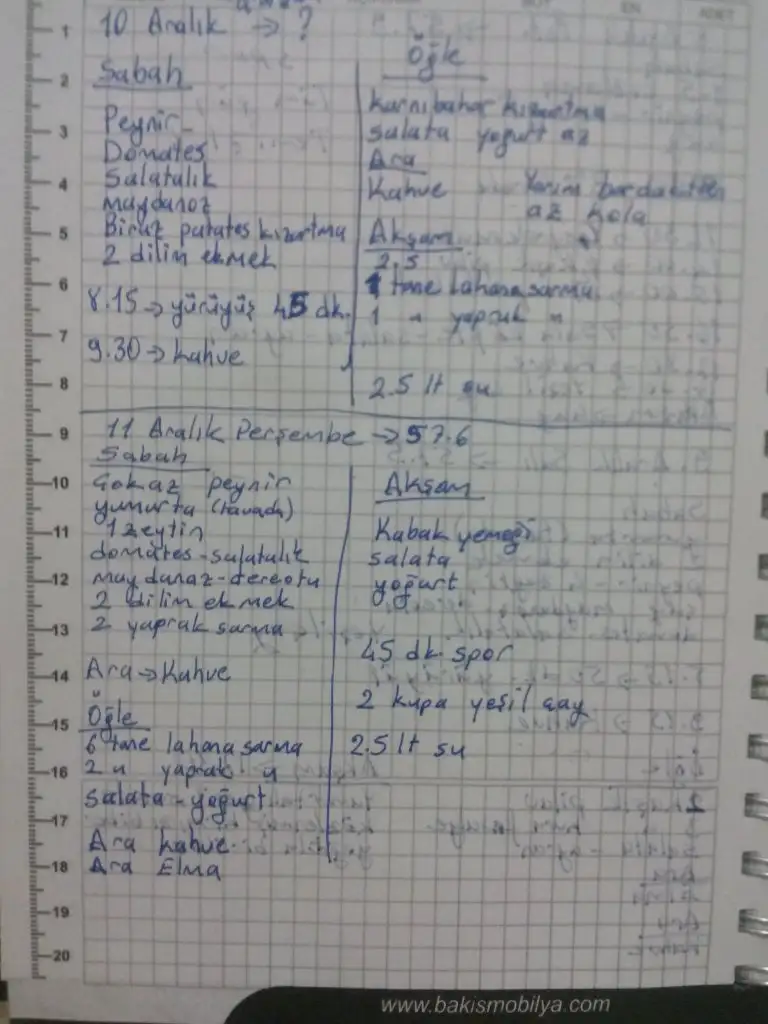 10 Aralık → ?
Sabah
Peynir
Domates
Salatalık
maydanoz
Biraz patates kızartma
2 dilim ekmek
8.15 → yürüyüş 45 dk.
9.30 → kahve
Öğle
karnıbahar kızartma
salata yoğurt az
Ara
Kahve Yarım bardaktan
az kola
Akşam
2.5
1 tane lahana sarma
1 " yaprak "
2.5 lt su
11 Aralık Perşembe → 57.6
Sabah
Çok az peynir
yumurta (tavada)
1 zeytin
domates - salatalık
maydanoz - dereotu
2 dilim ekmek
2 yaprak sarma
Ara → Kahve
Öğle
6 tane lahana sarma
2 " yaprak "
salata - yoğurt
Ara kahve
Ara Elma
Akşam
Kabak yemeği
salata
yoğurt
45 dk. spor
2 kupa yeşil çay
2.5 lt su
1
2
3
4
5
6
7
8
9
10
11
12
13
14
15
16
17
18
19
20
www.bakismobilya.com